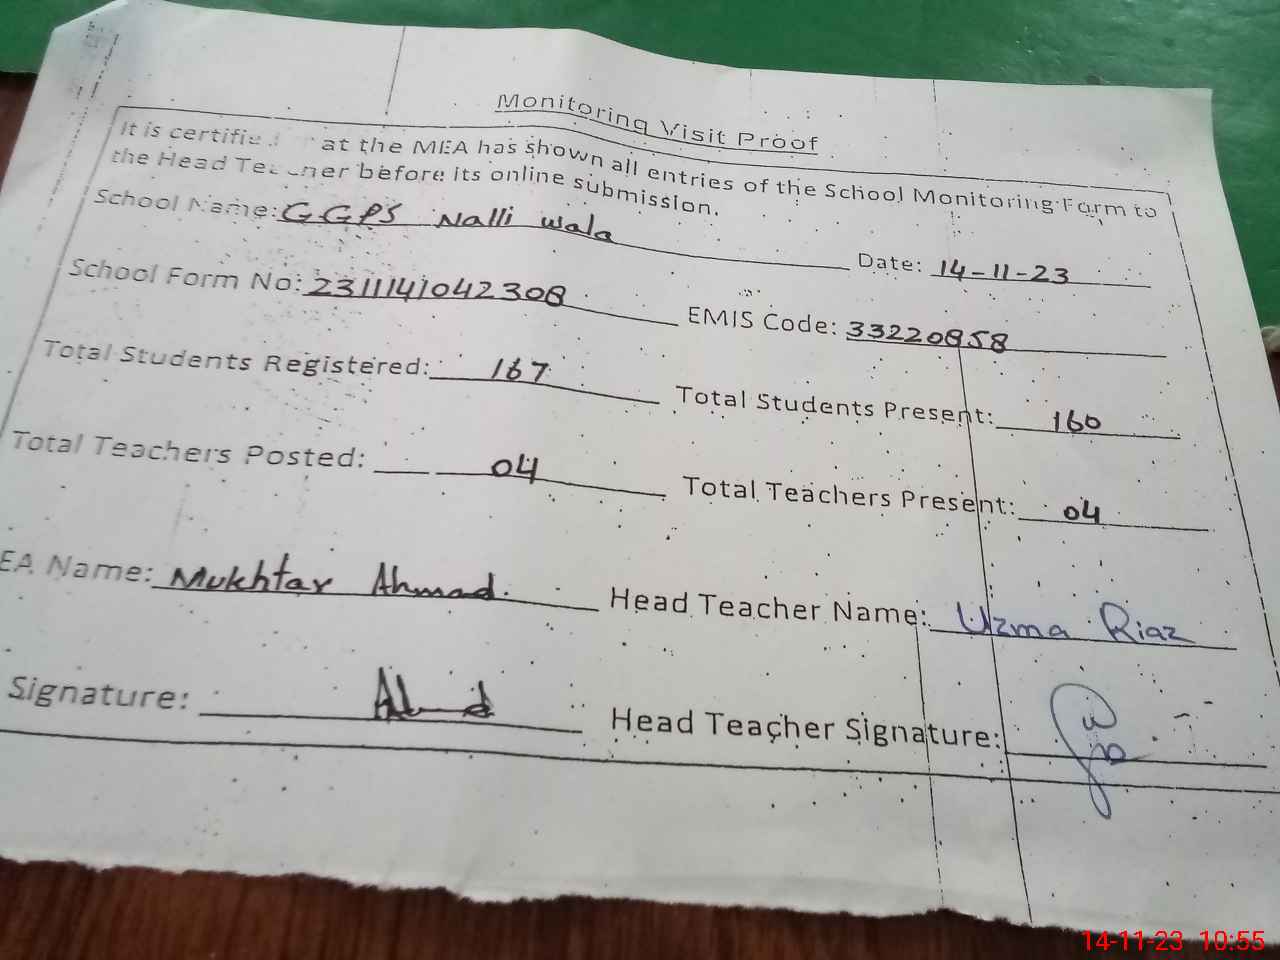 Monitoring Visit Proof
It is certified that the MEA has shown all entries of the School Monitoring Form to
the Head Teacher before its online submission.
School Name: GGPS Nalli wala Date: 14-11-23
School Form No: 2311141042308 EMIS Code: 33220858
Total Students Registered: 167 Total Students Present: 160
Total Teachers Posted: 04 Total Teachers Present: 04
EA Name: Mukhtar Ahmad. Head Teacher Name: Uzma Riaz
Signature: Ahmad Head Teacher Signature:
14-11-23 10:55